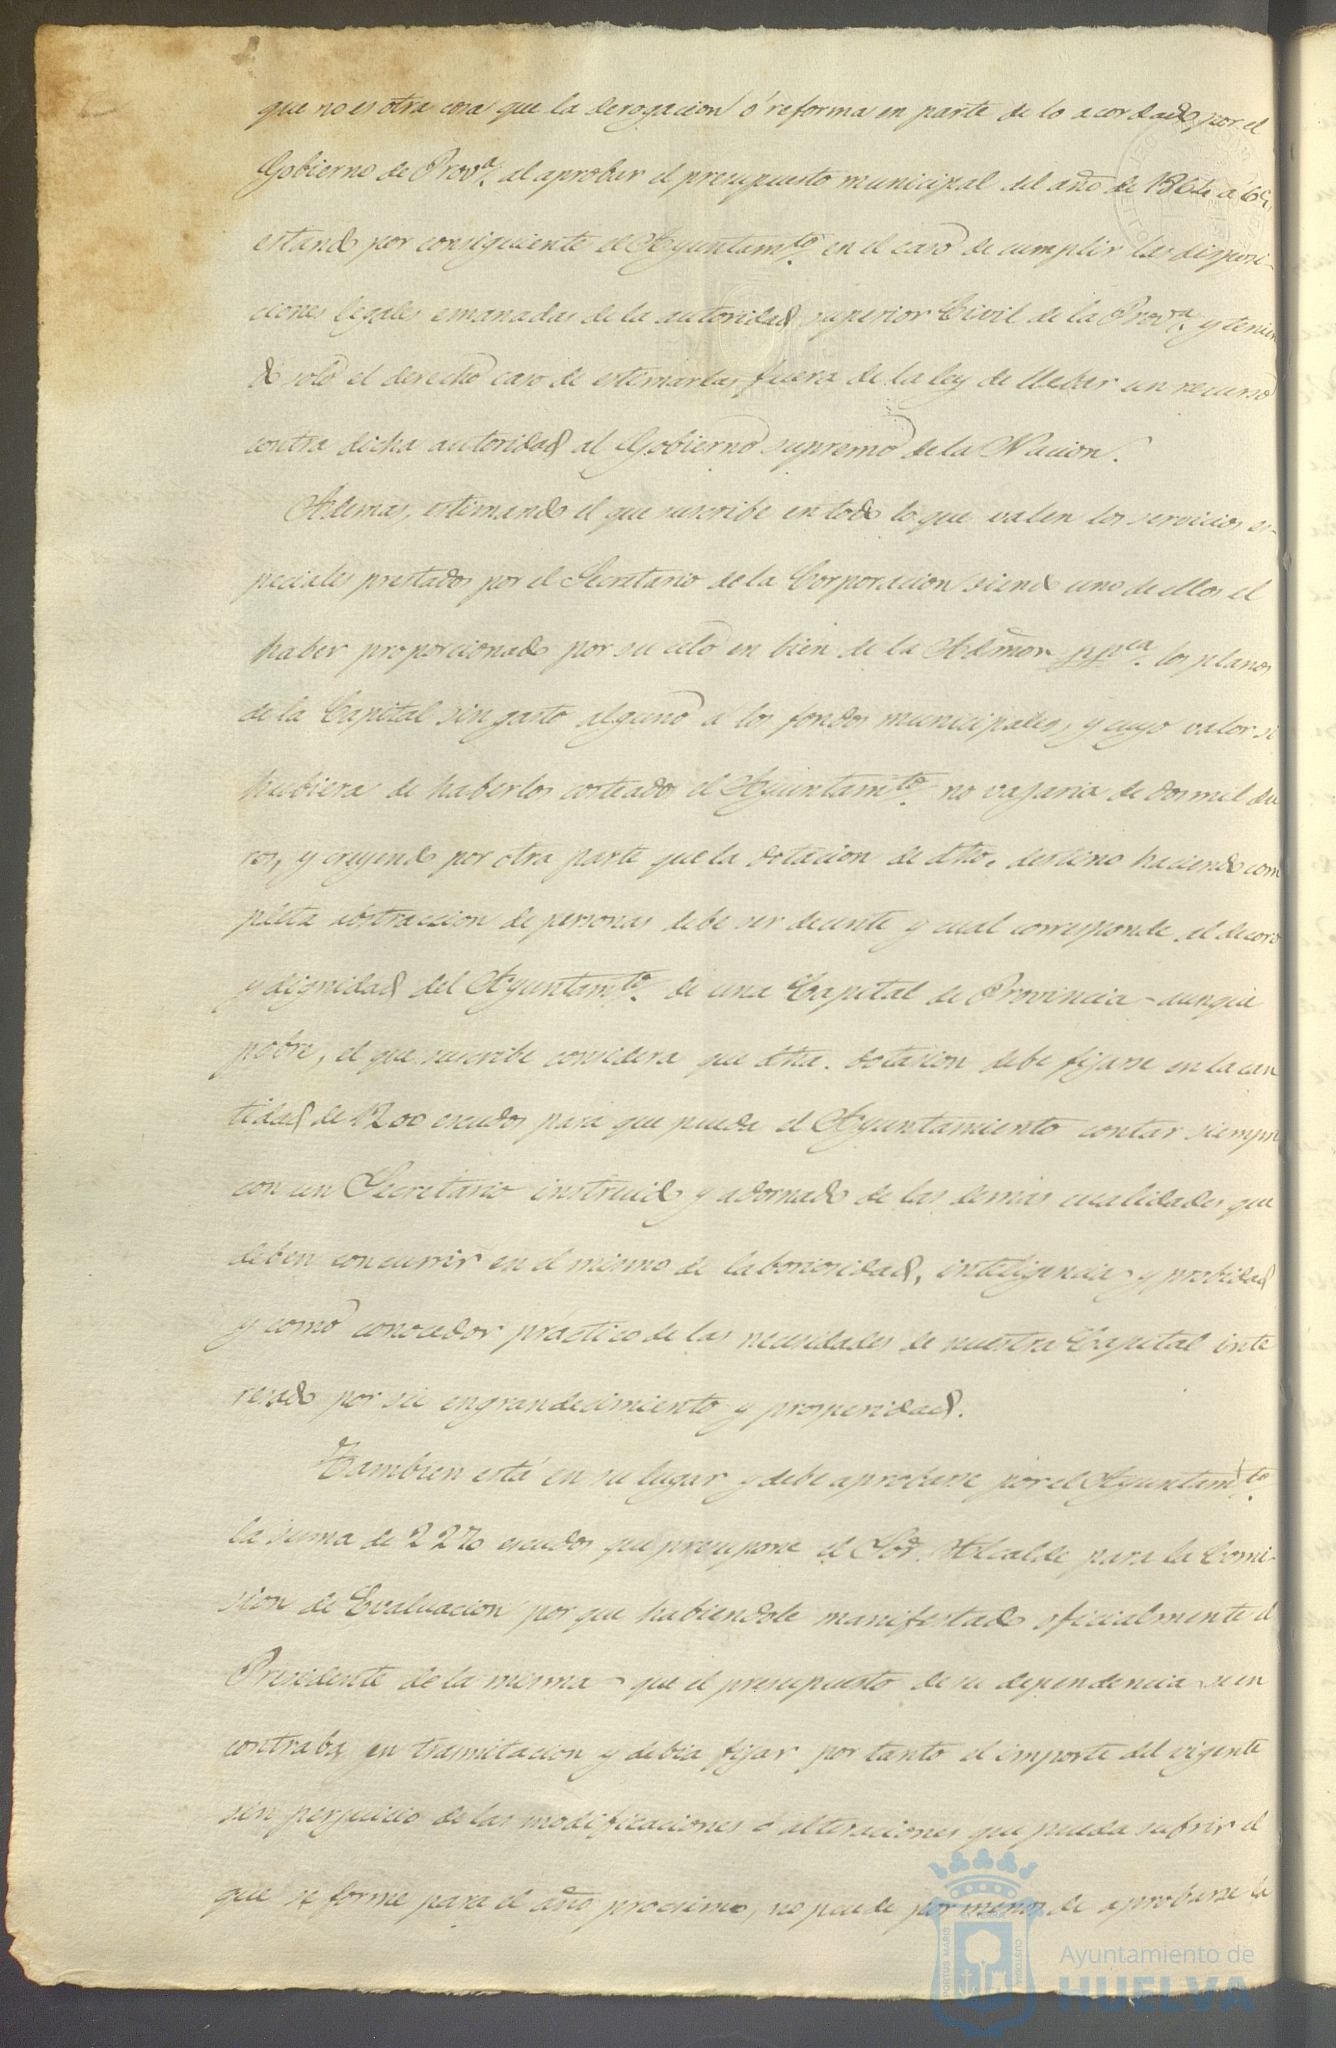 que no es otra cosa que la derogacion ó reforma en parte de lo acordado por el
Gobierno de Provª. al aprobar el presupuesto municipal del año de 1864 á 65,
estando por consiguiente el Ayuntamto. en el caso de cumplir las disposi-
ciones legales emanadas de la autoridad superior Civil de la Provª. y tenien
do solo el derecho caso de estimarlas fuera de la ley de llebar un recurso
contra dicha autoridad al Gobierno supremo de la Nacion.
Ademas, estimando el que suscribe en todo lo que valen los servicios es-
peciales prestados por el Secretario de la Corporacion siendo uno de ellos el
haber proporcionado por su celo en bien de la Admon ppca. los planos
de la Capital sin gasto alguno a los fondos municipales, y cuyo valor si
hubiera de haberlos costeado el Ayuntamto. no vajaria de dos mil du
ros, y creyendo por otra parte que la dotacion de dho. destino haciendo com
pleta abstraccion de personas debe ser decente y cual corresponde al decoro
y dignidad del Ayuntamto. de una Capital de Provincia aunque
pobre, el que suscribe considera que dha. dotacion debe fijarse en la can
tidad de 1200 escudos para que pueda el Ayuntamiento contar siempre
con un Secretario instruido y adornado de las demas cualidades que
deben concurrir en el mismo de laboriosidad, inteligencia y probidad
y como conocedor practico de las necesidades de nuestra Capital inte
resado por su engrandecimiento y prosperidad.
Tambien está en su lugar y debe aprobarse por el Ayuntamto.
la suma de 2270 escudos que presupone el Sor. Alcalde para la Comi-
sion de Evaluacion por que habiendole manifestado oficialmente el
Presidente de la misma que el presupuesto de su dependencia se en
contraba en tramitacion y debia fijar por tanto el importe del vigente
sin perjuicio de las modificaciones ó alteraciones que pueda sufrir el
que se forme para el año procsimo, no puede por menos de aprobarse la
Ayuntamiento de
HUELVA